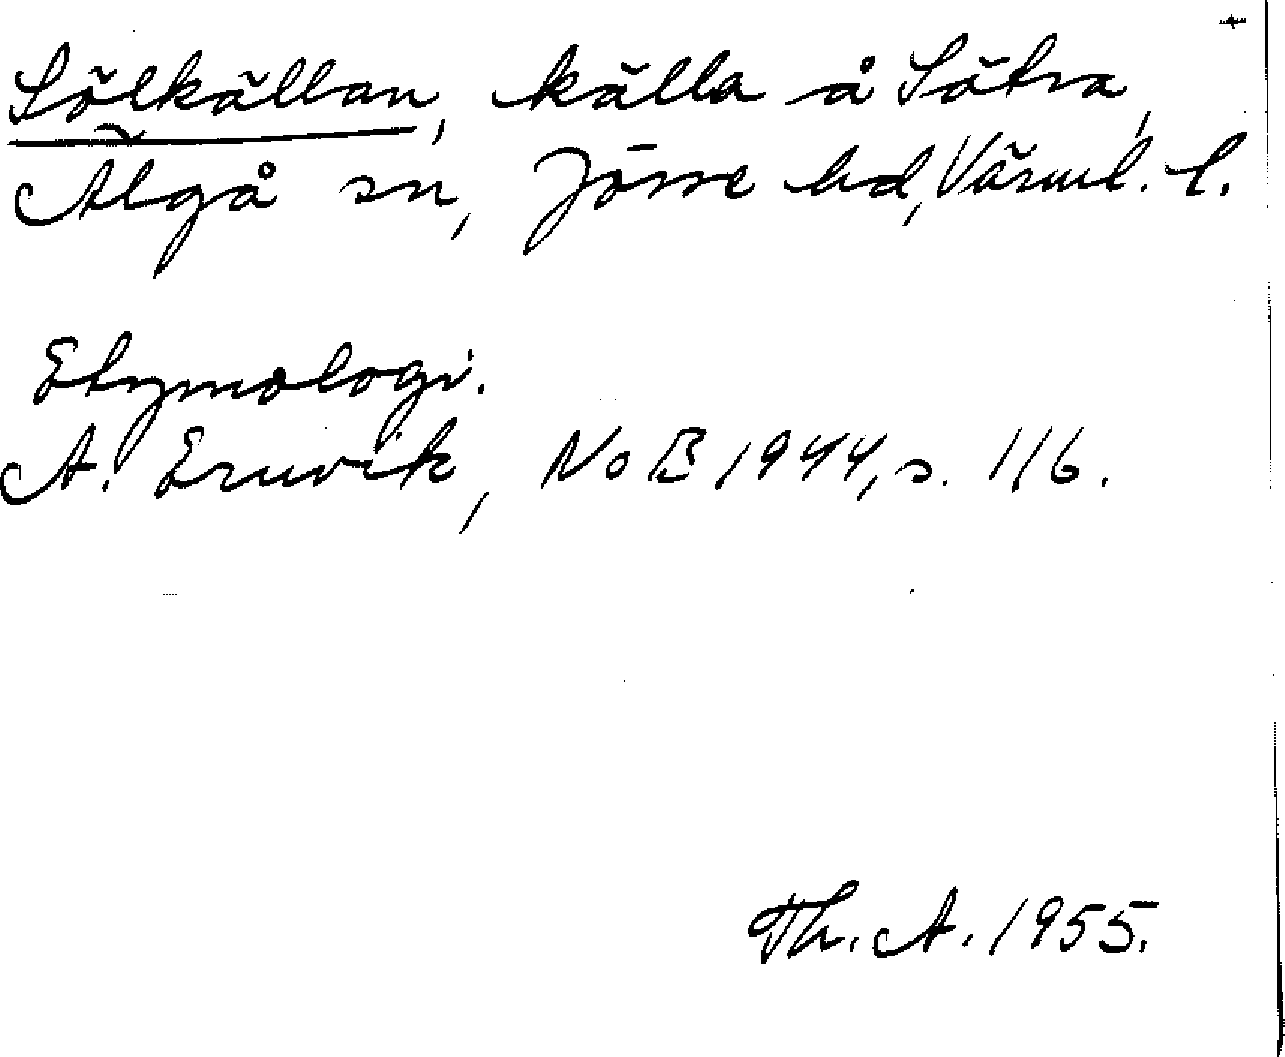 Sölkällan, källa å Sätra,
Älgå sn, Jösse hd, Värml. l.
Etymologi.
A. Ernvik, NoB 1944, s. 116.
Th. A. 1955.